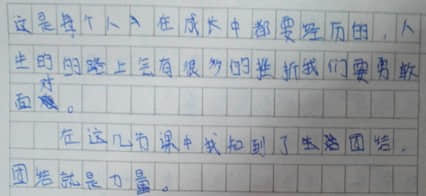 这是每个人人在成长中都要经历的，人
生的的路上会有很多的挫折我们要勇敢
面对。
在这几节课中我知到了生活团结，
团结就是力量。